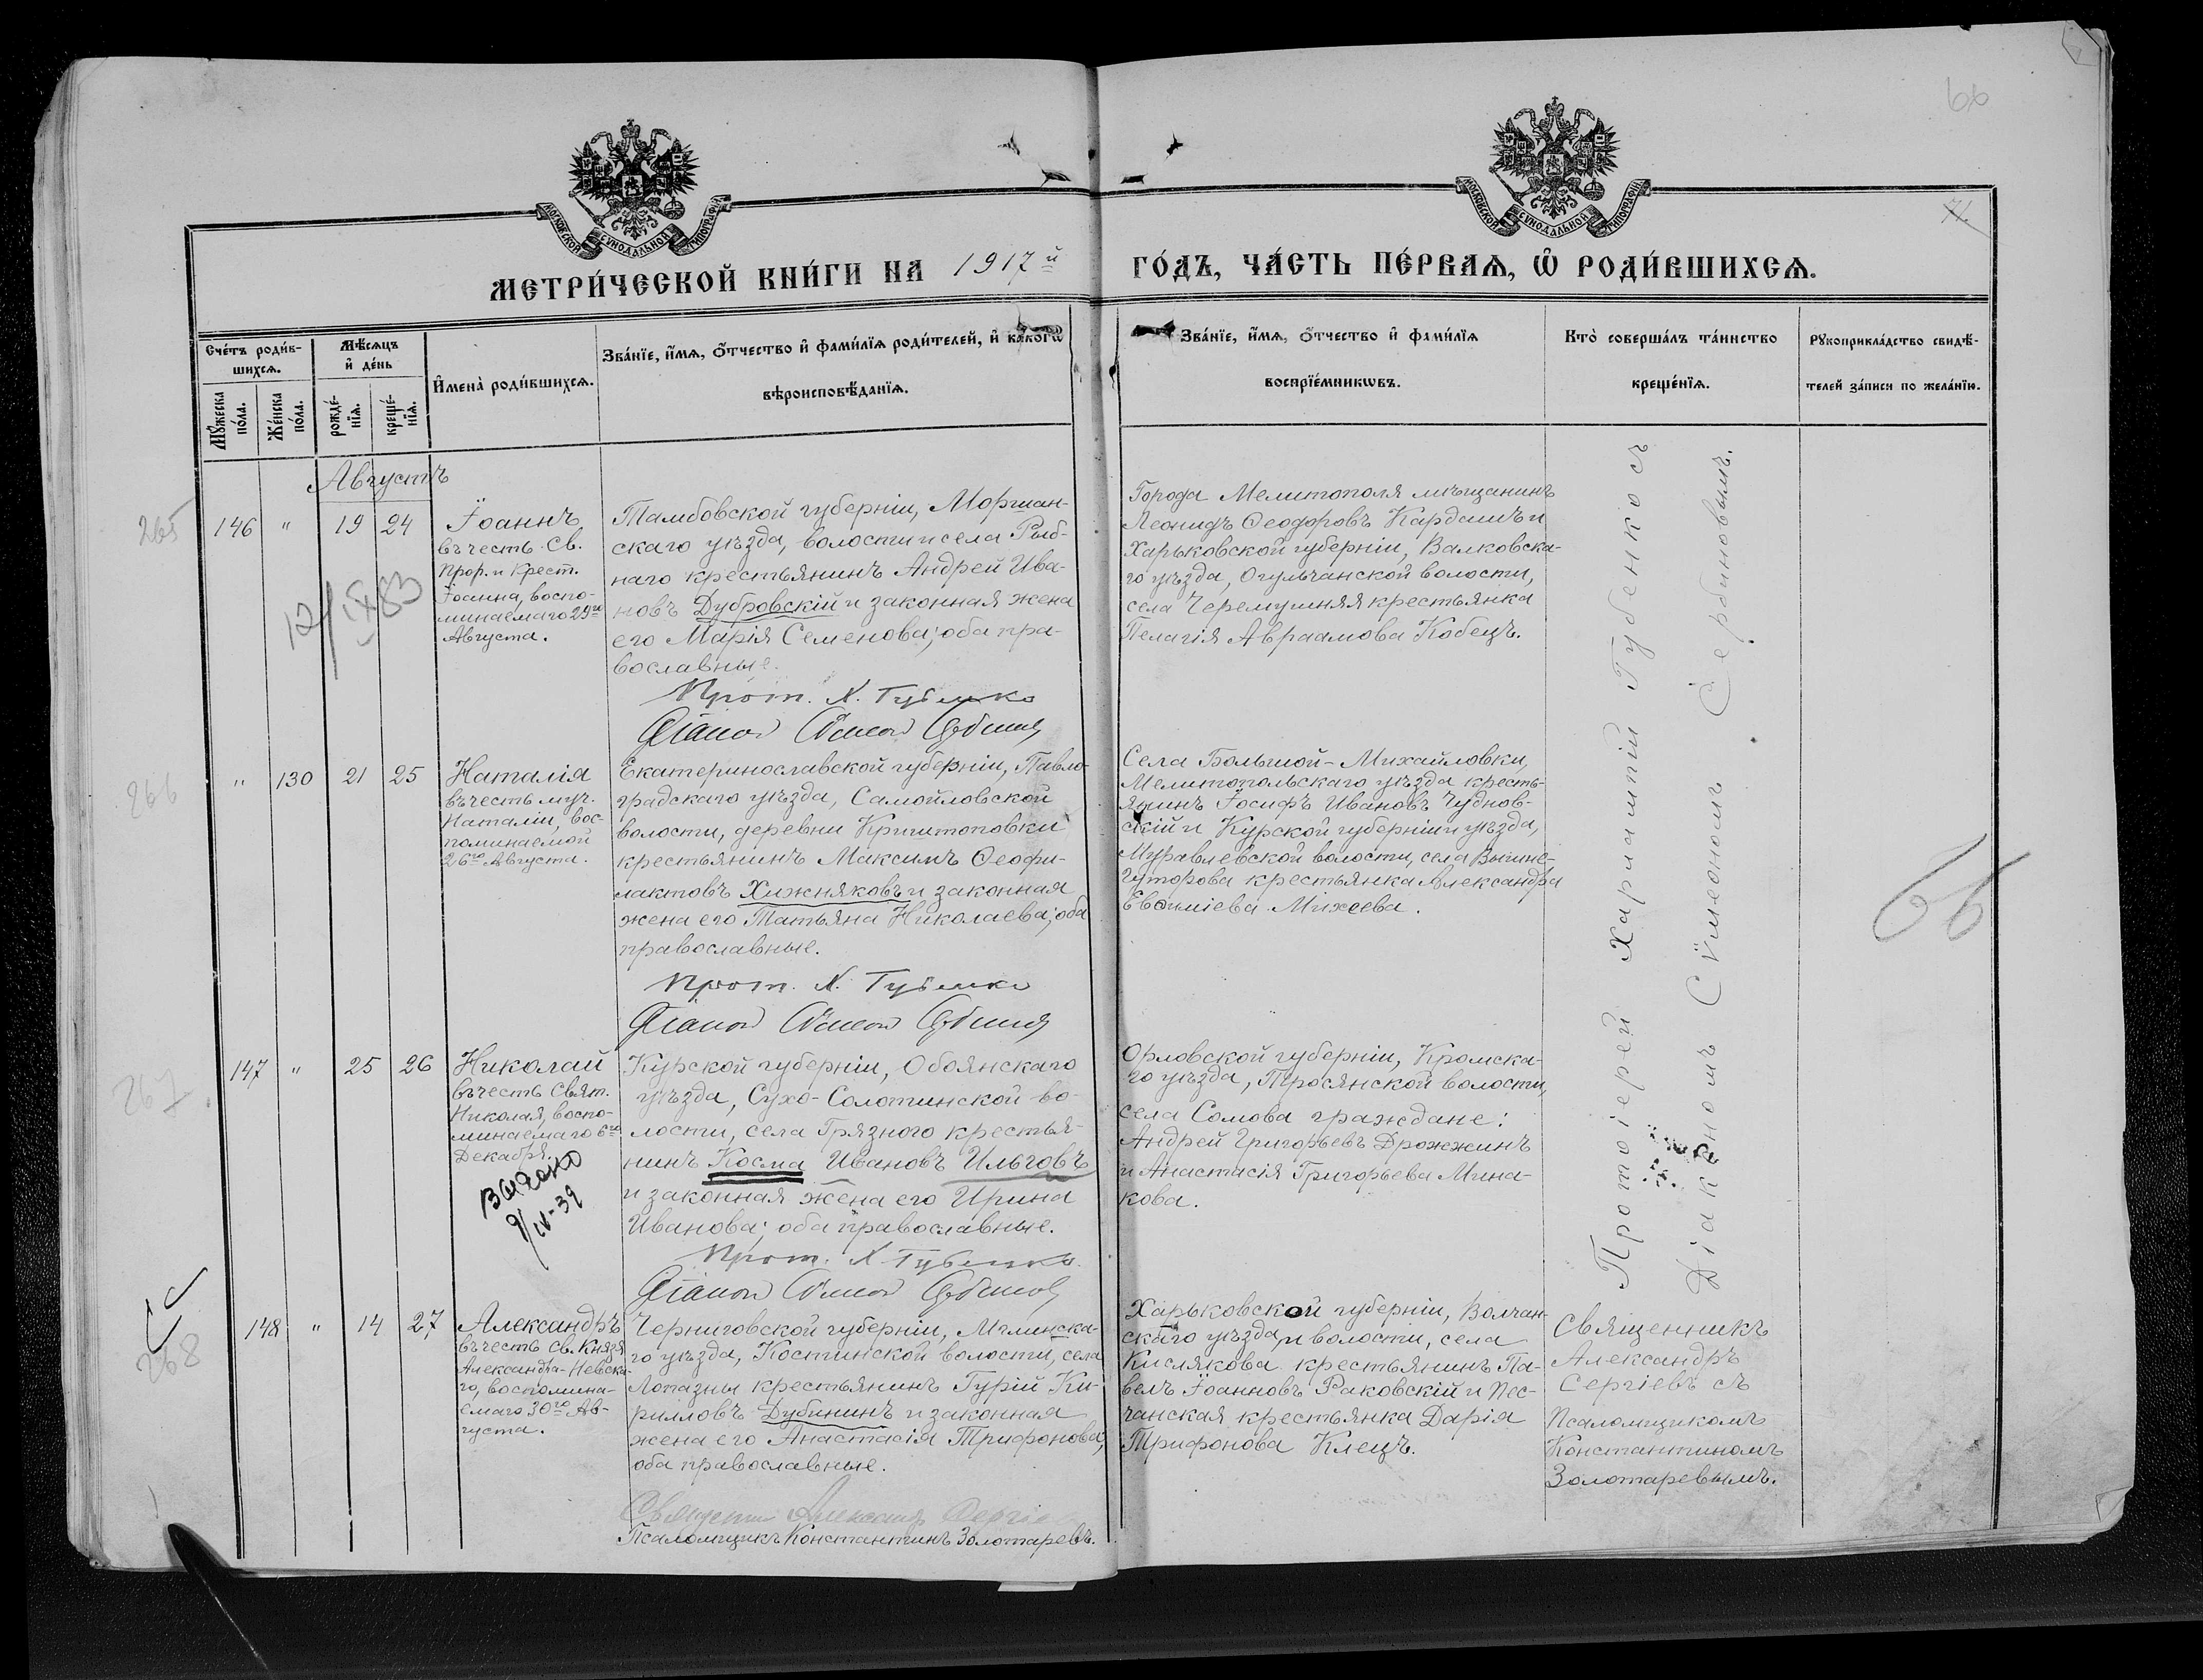 66
71.
МОСКОВСКОЙ СУНОДАЛЬНОЙ ТИПОГРАФІИ
МОСКОВСКОЙ СУНОДАЛЬНОЙ ТИПОГРАФІИ
МЕТРИ́ЧЕСКОЙ КНИ́ГИ НА 1917й ГО́ДЪ, ЧА́СТЬ ПЕ́РВАѦ, Ѡ РОДИ́ВШИХСѦ.
Сче́тъ роди́в-
шихсѧ.
Мꙋ́жеска по́ла.
Же́нска по́ла.
Мѣ́сѧцъ
и҆ де́нь
рожде́-
нїѧ.
креще́-
нїѧ.
И҆мена̀ роди́вшихсѧ.
Зва́нїе, и҆́мѧ, ѻ҆́тчество и҆ фами́лїѧ роди́телей, и҆ како́гѡ
вѣроисповѣ́данїѧ.
Зва́нїе, и҆́мѧ, ѻ҆́тчество и҆ фами́лїѧ
воспрїе́мникѡвъ.
Кто̀ соверша́лъ та́инство
креще́нїѧ.
Рꙋкоприкла́дство свидѣ́-
телей за́писи по жела́нїю.
Августъ
265
146 " 19 24
Іоаннъ
въ честь Св.
Прор. и Крест.
Іоанна, воспо-
минаемаго 29го
Августа.
12/IX 83
Тамбовской губерніи, Моршан-
скаго уѣзда, волости и села Рыб-
наго крестьянинъ Андрей Ива-
новъ Дубровскій и законная жена
его Марія Семенова; оба пра-
вославные.
Прот. Х. Губенко
Діакон Сѵмеон Сербинов
Города Мелитополя мѣщанинъ
Леонидъ Ѳеодоровъ Кардашъ и
Харьковской губерніи, Валковска-
го уѣзда, Огульчанской волости,
села Черемушняя крестьянка
Пелагія Авраамова Кобецъ.
266
" 130 21 25
Наталія
въ честь муч.
Наталіи, вос-
поминаемой
26го Августа.
Екатеринославской губерніи, Павло-
градскаго уѣзда, Самойловской
волости, деревни Криштоповки
крестьянинъ Максимъ Ѳеофи-
лактовъ Хижняковъ и законная
жена его Татьяна Николаева; оба
православные.
Прот. Х. Губенко
Діакон Сѵмеон Сербинов
Села Большой-Михайловки,
Мелитопольскаго уѣзда кресть-
янинъ Іосифъ Ивановъ Чуднов-
скій и Курской губерніи и уѣзда,
Муравлевской волости, села Вышне-
Гуторова крестьянка Александра
Евѳиміева Михеева.
66
267
147 " 25 26
Николай
въ честь Свят.
Николая, воспо-
минаемаго 6го
Декабря.
выдано
9/IV-39
Курской губерніи, Обоянскаго
уѣзда, Сухо-Солотинской во-
лости, села Грязного крестья-
нинъ Косма Ивановъ Ильговъ
и законная жена его Ирина
Иванова; оба православные.
Прот. Х. Губенко
Діакон Сѵмеон Сербинов
Орловской губерніи, Кромска-
го уѣзда, Тросянской волости,
села Сомова граждане:
Андрей Григорьевъ Дрожжинъ
и Анастасія Григорьева Мина-
кова.
Протоіерей Харлампій Губенко съ
Діакономъ Сѵмеономъ Сербиновымъ.
268
148 " 14 27
Александръ
въ честь Св. Князя
Александра-Невска-
го, воспомина-
емаго 30го Ав-
густа.
Черниговской губерніи, Мглинска-
го уѣзда, Костинской волости, села
Лопазны крестьянинъ Гурій Ки-
рилловъ Дубининъ и законная
жена его Анастасія Трифонова;
оба православные.
Священник Александр Сергіев
Псаломщикъ Константинъ Золотаревъ.
Харьковской губерніи, Волчан-
скаго уѣзда, и волости, села
Кислякова крестьянинъ Па-
велъ Іоанновъ Раковскій и Пес-
чанская крестьянка Дарія
Трифонова Клецъ.
Священникъ
Александръ
Сергіевъ съ
Псаломщикомъ
Константиномъ
Золотаревымъ.